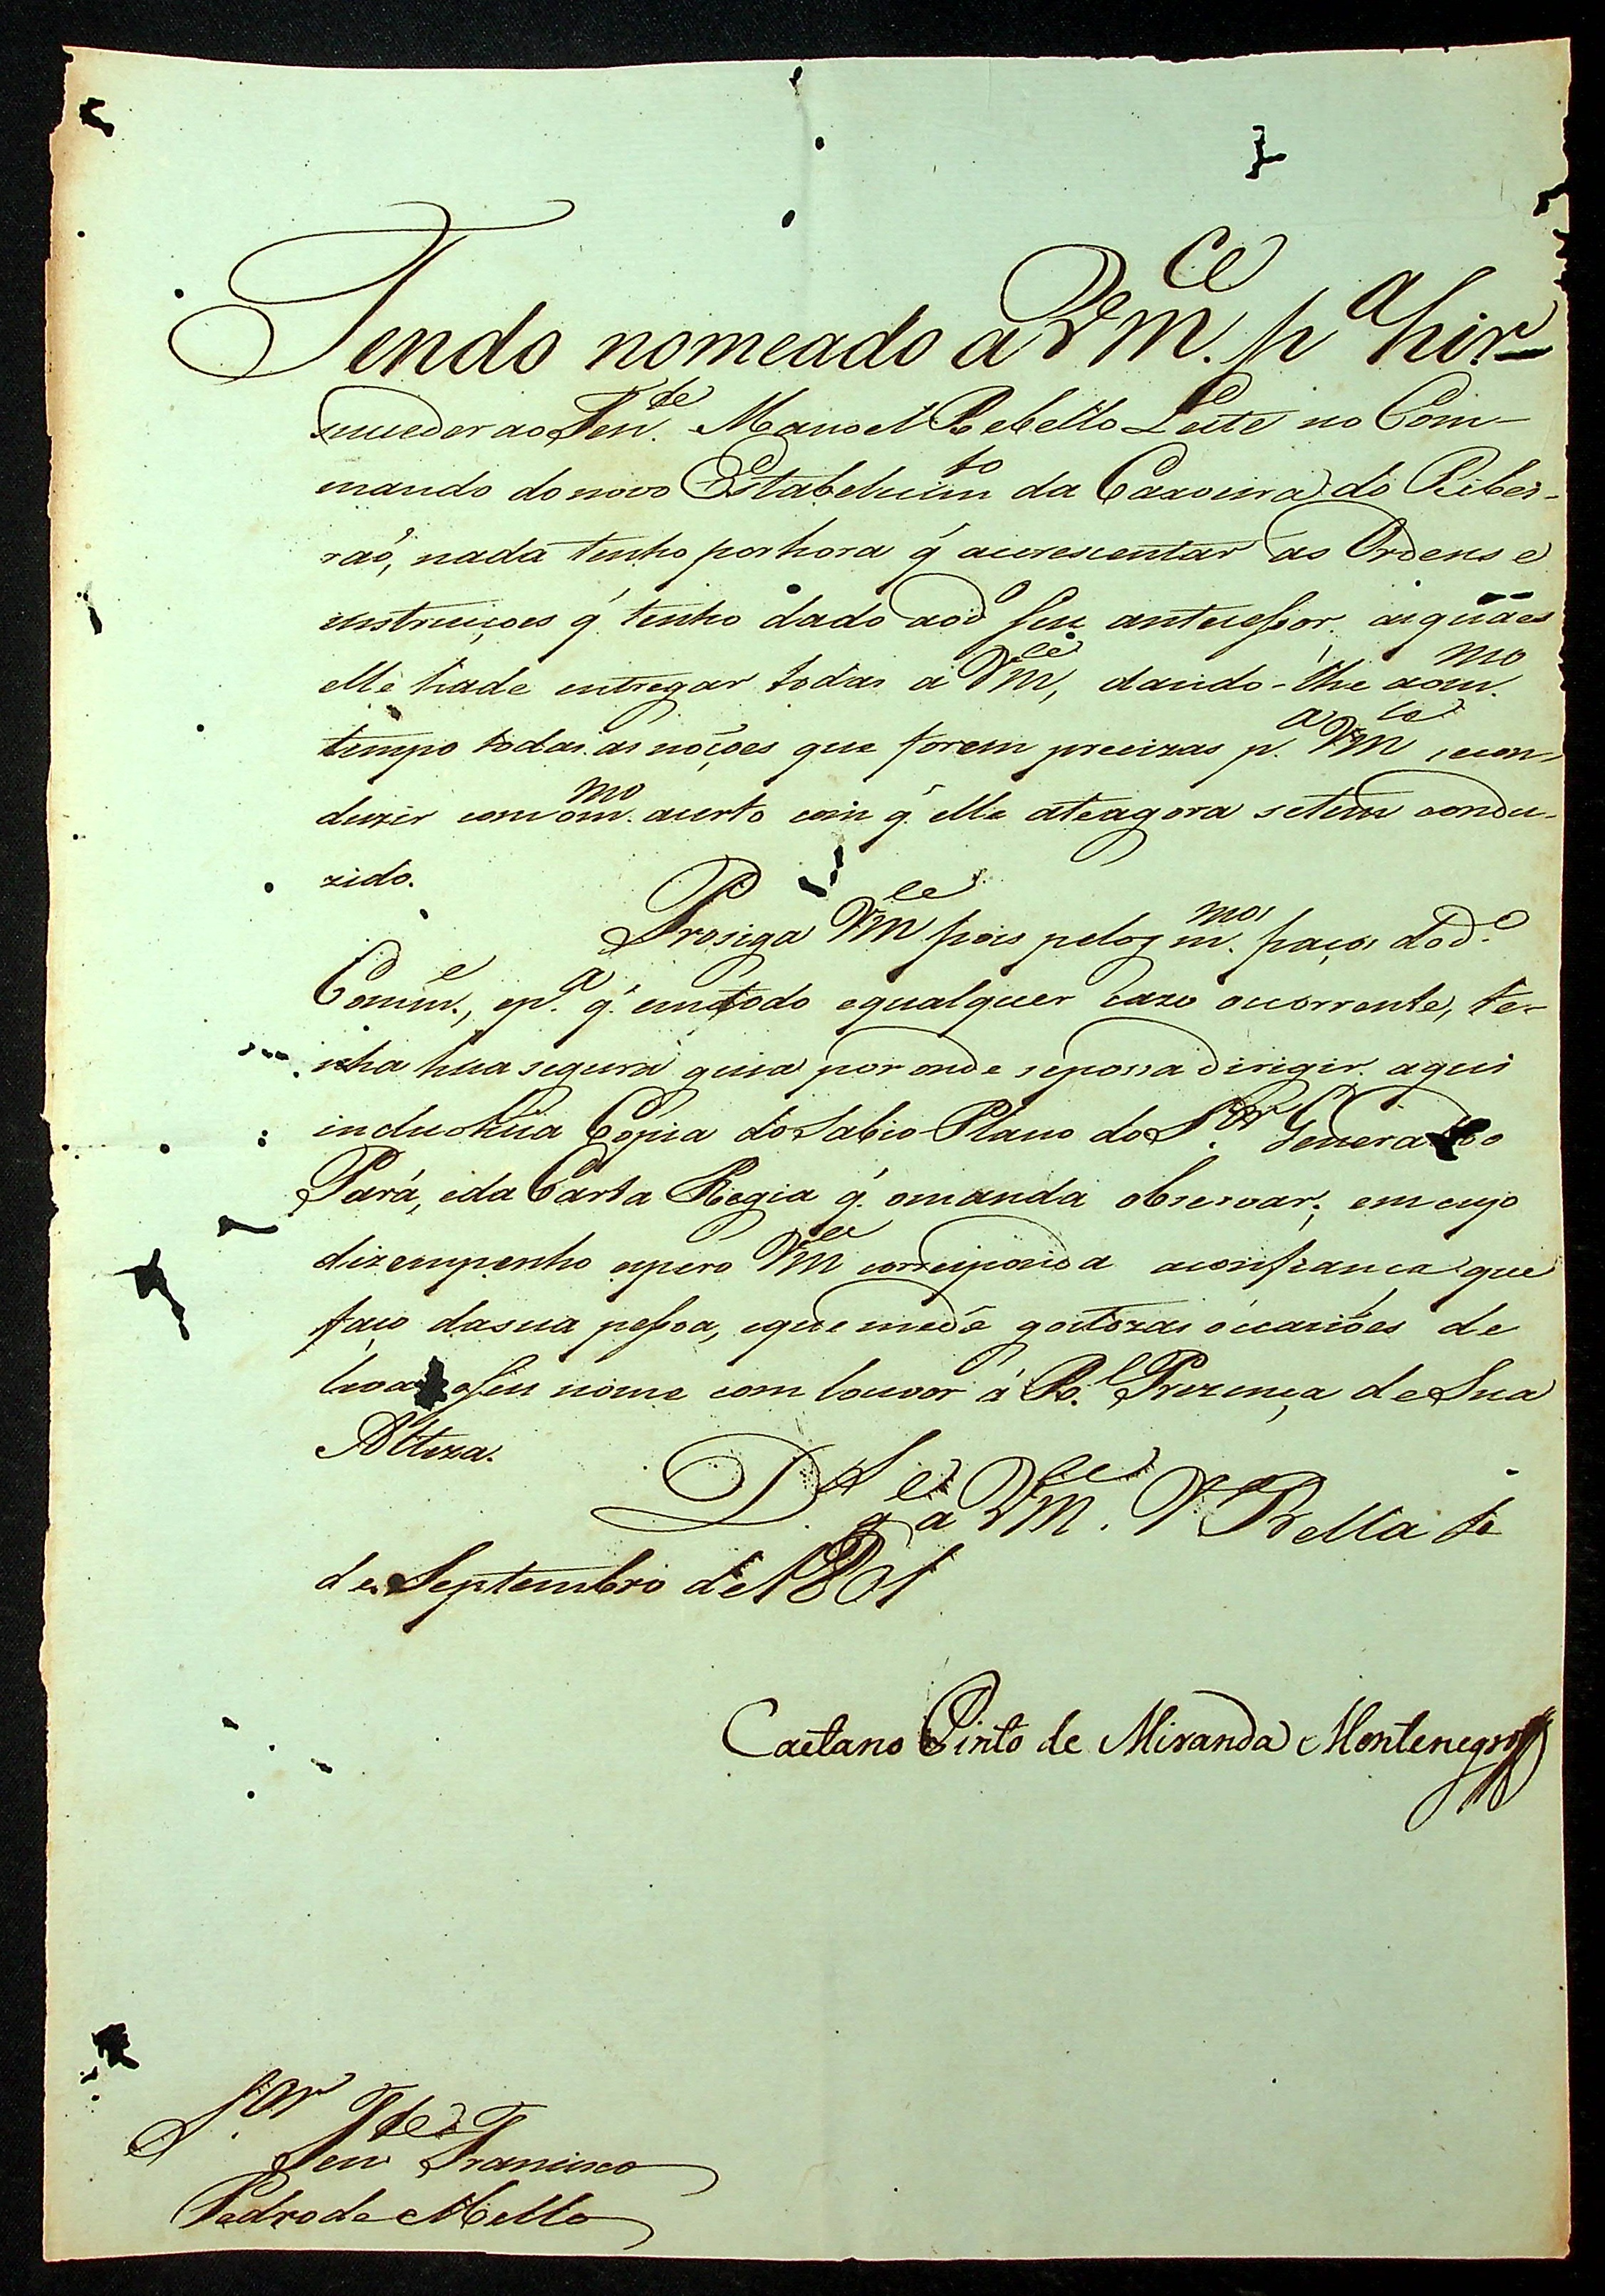 Tendo nomeado a Vm.ce p.a hir
succeder ao Ten.de Manoel Rebello Leite no Com-
mando do novo Estabelecim.to da Caxoeira do Ribei-
raõ, nada tenho por hora q̃ accrescentar as Ordens e
instruiçoes q̃ tenho dado aod.o seu antecessor. as quaes
elle hade entregar todas a Vm.ce, dando-lhe aom.mo
tempo todas as noçoes que forem precizas p.a Vm.ce secon-
duzir com om.mo acerto com q̃ elle ateagora setem condu-
zido.
Prosiga Vm.ce pois pelos m.mos paços dod.o
Comm.e, ep.a q̃ emtodo equalquer cazo ocorrente, te-
nha hua segura guia por onde sepossa dirigir. aqui
incluo húa Cópia do Sabio Plano do S.or General do
Pará, eda Carta Regia q̃ omanda observar; em cujo
dizempenho espero Vm.ce corresponda aconfiança que
faço dasua pessoa, eque medê gostozas occasiões de
levar oseu nome com louvor á R.l Prezença de Sua
Alteza.
D.s g.e a Vm.ce V.a Bella
de Septembro de 1801
Caetano Pinto de Miranda Montenegro
S.or Ten.de Francisco
Pedro de Mello